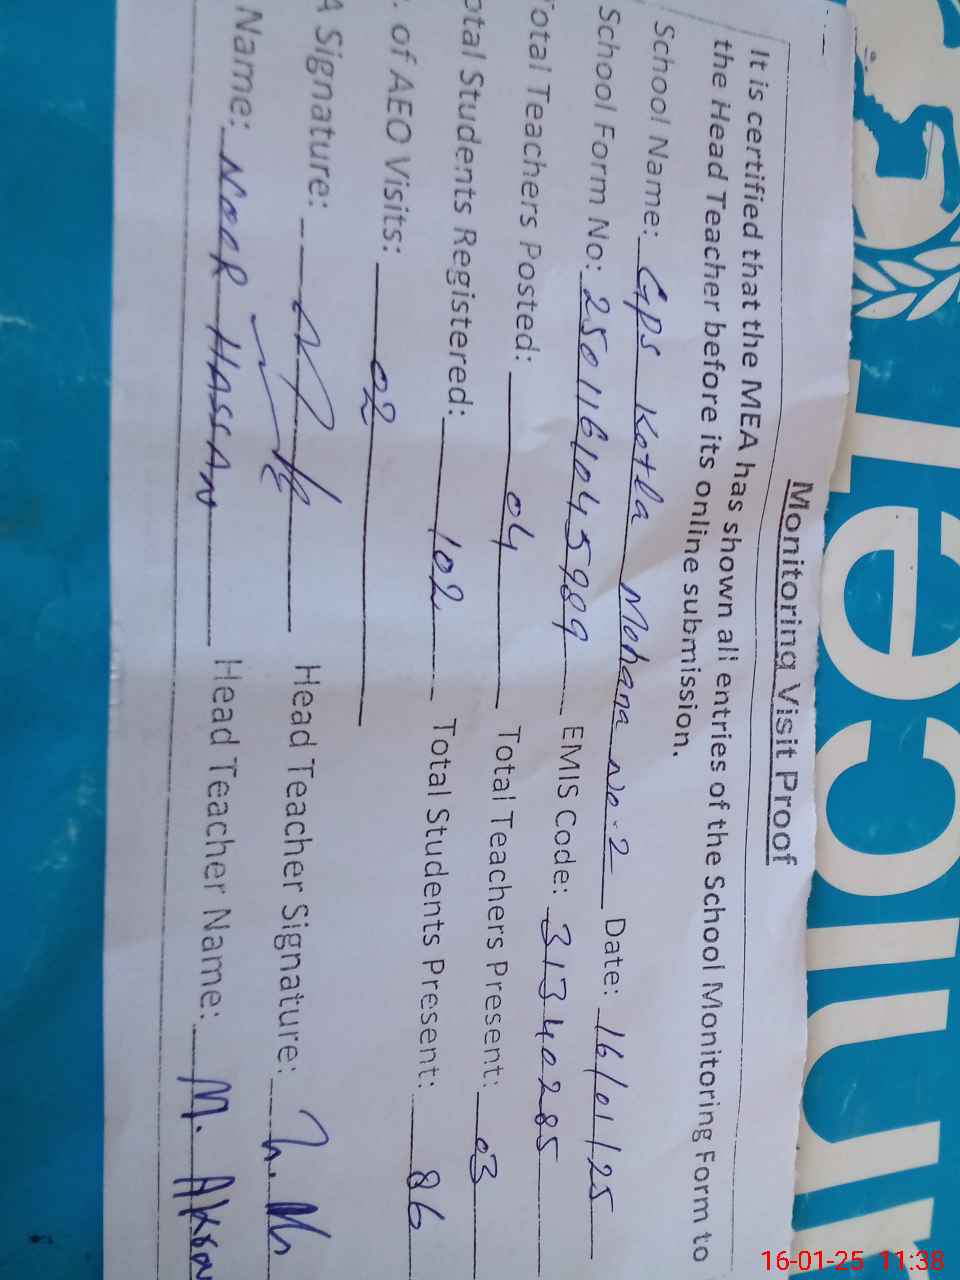 Monitoring Visit Proof
It is certified that the MEA has shown all entries of the School Monitoring Form to
the Head Teacher before its online submission.
School Name: GPS Kotla Mohana No.2 Date: 16/01/25
School Form No: 2501161045989 EMIS Code: 31340285
Total Teachers Posted: 04 Total Teachers Present: 03
otal Students Registered: 102 Total Students Present: 86
. of AEO Visits: 02
A Signature: Head Teacher Signature:
Name: NOOR HASSAN Head Teacher Name: M. Akram
16-01-25 11:38